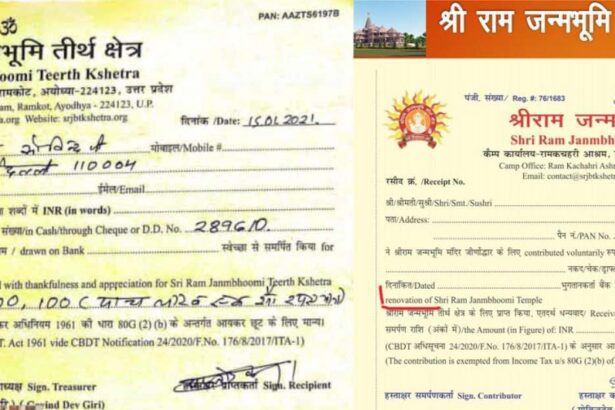 PAN: AAZTS6197B
भूमि तीर्थ क्षेत्र
hoomi Teerth Kshetra
रामकोट, अयोध्या-224123, उत्तर प्रदेश
am, Ramkot, Ayodhya - 224123, U.P.
a.org Website: srjbtkshetra.org
दिनांक /Date: 15.01.2021.
मोबाइल/Mobile #
110004
ईमेल/Email
शब्दों में INR (in words)
संख्या/in Cash/through Cheque or D.D. No. 289610
म / drawn on Bank स्वेच्छा से समर्पित किया
d with thankfulness and appreciation for Sri Ram Janmbhoomi Teerth Kshetra
00,100
र अधिनियम 1961 की धारा 80G (2) (b) के अन्तर्गत आयकर छूट के लिए मान्य।
T. Act 1961 vide CBDT Notification 24/2020/F.No. 176/8/2017/ITA-1)
ाध्यक्ष Sign. Treasurer
प्राप्तिकर्ता Sign. Recipient
(Govind Dev Giri)
श्री राम जन्मभूमि
पंजी. संख्या/ Reg. #: 76/1683
श्रीराम जन्म
Shri Ram Janmbh
कैम्प कार्यालय-रामकचहरी आश्रम,
Camp Office: Ram Kachahri Ashr
Email: contact@srjbtkshet
रसीद क्र. /Receipt No.
श्री/श्रीमती/सुश्री/Shri/Smt./Sushri
पता/Address:
पैन नं./PAN No.
ने श्रीराम जन्मभूमि मंदिर जीर्णोद्धार के लिए contributed voluntarily रुपये
नकद/चेक/ड्राफ
दिनांकित/Dated भुगतानकर्ता बैंक
renovation of Shri Ram Janmbhoomi Temple
श्रीराम जन्मभूमि तीर्थ क्षेत्र के लिए प्राप्त किया, एतदर्थ धन्यवाद/ Receive
समर्पण राशि (अंकों में)/the Amount (in Figure) of: INR
(CBDT अधिसूचना 24/2020/F.No. 176/8/2017/ITA-1) के अनुसार आ
(The contribution is exempted from Income Tax u/s 80G (2) (b) of
हस्ताक्षर समर्पणकर्ता Sign. Contributor
हस्ताक्षर